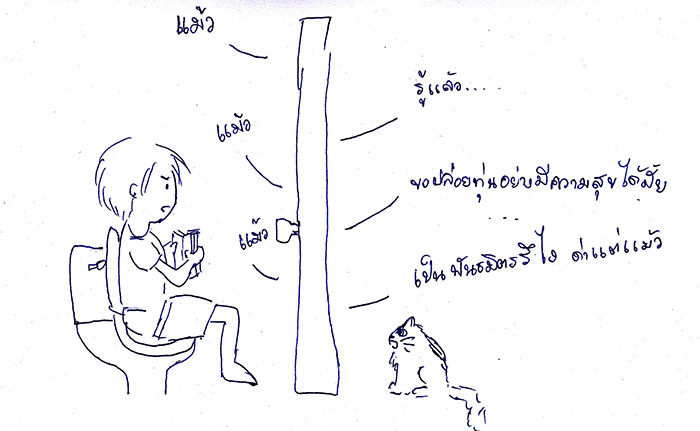 แม้ว
รู้แล้ว.....
แม้ว
ขอปล่อยทุ่นอย่างมีความสุขได้มั้ย
...
แม้ว
เป็นพันธมิตรรึไง ด่าแต่แม้ว